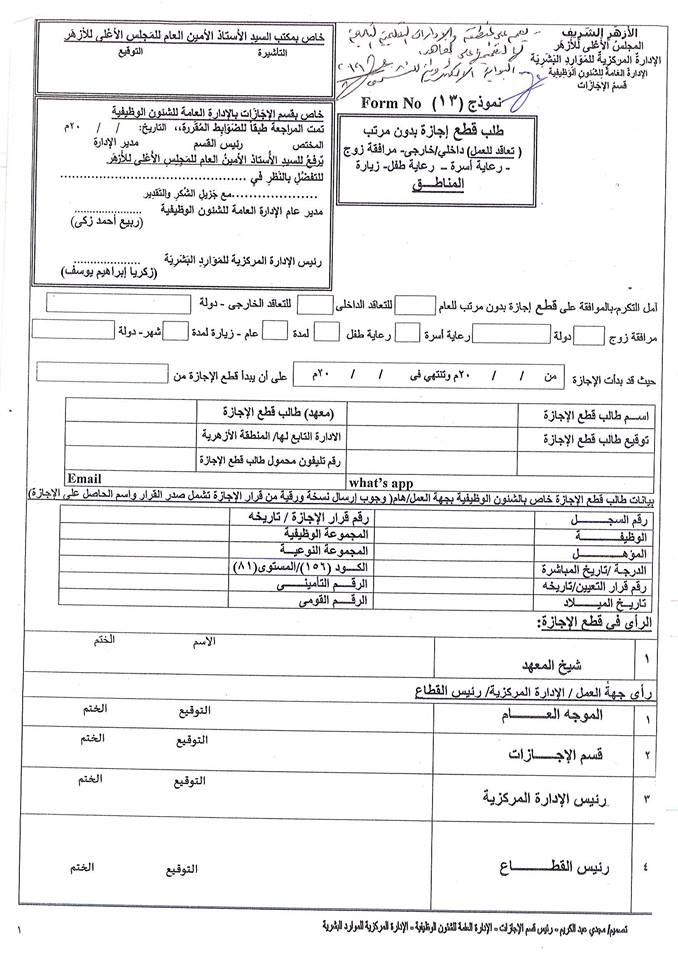 الأزهر الشريف
المجلس الأعلى للأزهر
الإدارة المركزية للموارد البشرية
الإدارة العامة للشئون الوظيفية
قسم الإجازات
خاص بمكتب السيد الأستاذ الأمين العام للمجلس الأعلى للأزهر
التأشيرة التوقيع
نموذج (١٣) Form No
طلب قطع إجازة بدون مرتب
(تعاقد للعمل) داخلي/خارجى- مرافقة زوج
- رعاية أسرة – رعاية طفل- زيارة
المناطق
خاص بقسم الإجازات بالإدارة العامة للشئون الوظيفية
تمت المراجعة طبقاً للضوابط المقررة،، التاريخ: / / ٢٠م
المختص رئيس القسم مدير الإدارة
يرفع للسيد الأستاذ الأمين العام للمجلس الأعلى للأزهر
للتفضل بالنظر في ........................................
....................مع جزيل الشكر والتقدير
مدير عام الإدارة العامة للشئون الوظيفية ....................
(ربيع أحمد زكى)
رئيس الإدارة المركزية للموارد البشرية ....................
(زكريا إبراهيم يوسف)
آمل التكرم بالموافقة على قطع إجازة بدون مرتب للعام للتعاقد الداخلى للتعاقد الخارجى - دولة
مرافقة زوج دولة رعاية أسرة رعاية طفل لمدة عام - زيارة لمدة شهر- دولة
حيث قد بدأت الإجازة من / / ٢٠م وتنتهي فى / / ٢٠م على أن يبدأ قطع الإجازة من
اسم طالب قطع الإجازة (معهد) طالب قطع الإجازة
توقيع طالب قطع الإجازة الادارة التابع لها/ المنطقة الأزهرية
رقم تليفون محمول طالب قطع الإجازة
what's app Email
بيانات طالب قطع الإجازة خاص بالشئون الوظيفية بجهة العمل/هام( وجوب إرسال نسخة ورقية من قرار الإجازة تشمل صدر القرار واسم الحاصل على الإجازة)
رقم السجل رقم قرار الإجازة / تاريخه
الوظيفة المجموعة الوظيفية
المؤهل المجموعة النوعية
الدرجة /تاريخ المباشرة الكود (١٥٦)/المستوى(٨١)
رقم قرار التعيين/تاريخه الرقم التأمينى
تاريخ الميلاد الرقم القومى
الرأى فى قطع الإجازة:
١ شيخ المعهد الاسم الختم
رأى جهة العمل / الإدارة المركزية/ رئيس القطاع
١ الموجه العام التوقيع الختم
٢ قسم الإجازات التوقيع الختم
٣ رئيس الإدارة المركزية التوقيع الختم
٤ رئيس القطاع التوقيع الختم
تصميم/ مجدي عبد الكريم – رئيس قسم الإجازات – الإدارة العامة للشئون الوظيفية – الإدارة المركزية للموارد البشرية
١